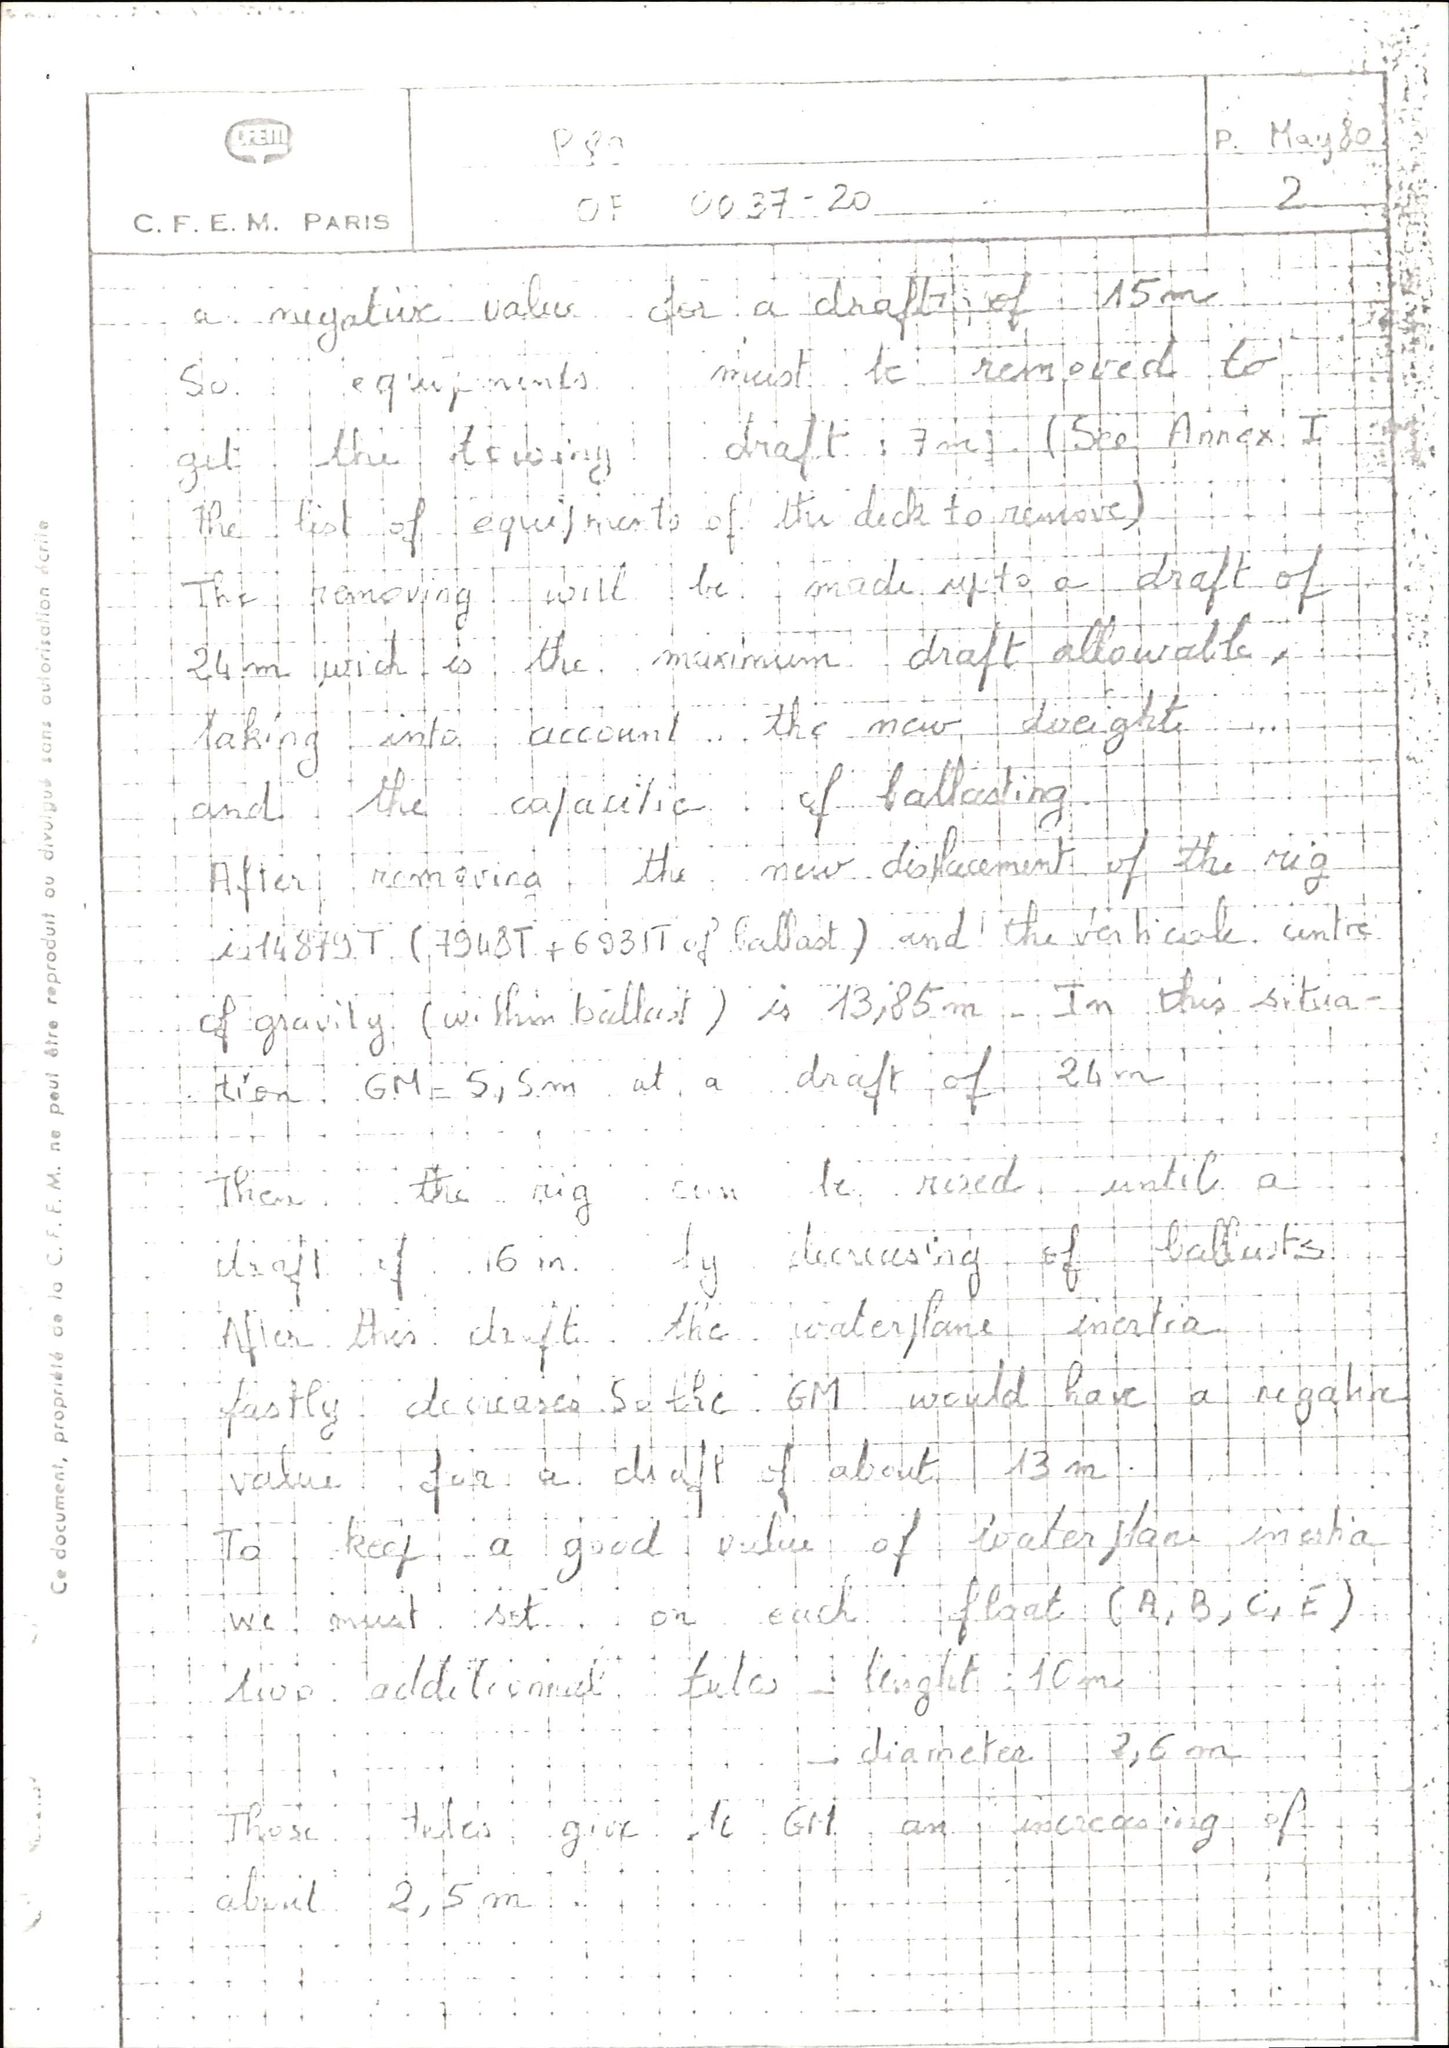 CFEM
C. F. E. M. PARIS
OF 0037-20
P. May 80
2
a negative value for a draft of 15m
So equipments must be removed to
get the towing draft : 7m. (See Annex I
the list of equipments of the deck to remove)
The removing will be made up to a draft of
24m wich is the maximum draft allowable,
taking into account the new weight
and the capacitie of ballasting
After removing the new displacement of the rig
is 14879T (7948T + 6931T of ballast) and the verticale centre
of gravity (within ballast) is 13,85m _ In this situa-
tion GM = 5,5m at a draft of 24m
Then the rig can be rised until a
draft of 16m by decreasing of ballasts
After this draft the waterplane inertia
fastly decreases So the GM would have a negative
value for a draft of about 13m
To keep a good value of waterplane inertia
we must set on each float (A, B, C, E)
two additionnal tubes _ lenght : 10m
_ diameter 2,6m
Those tubes give to GM an increasing of
about 2,5m
Ce document, propriété de la C. F. E. M. ne peut être reproduit ou divulgué sans autorisation écrite